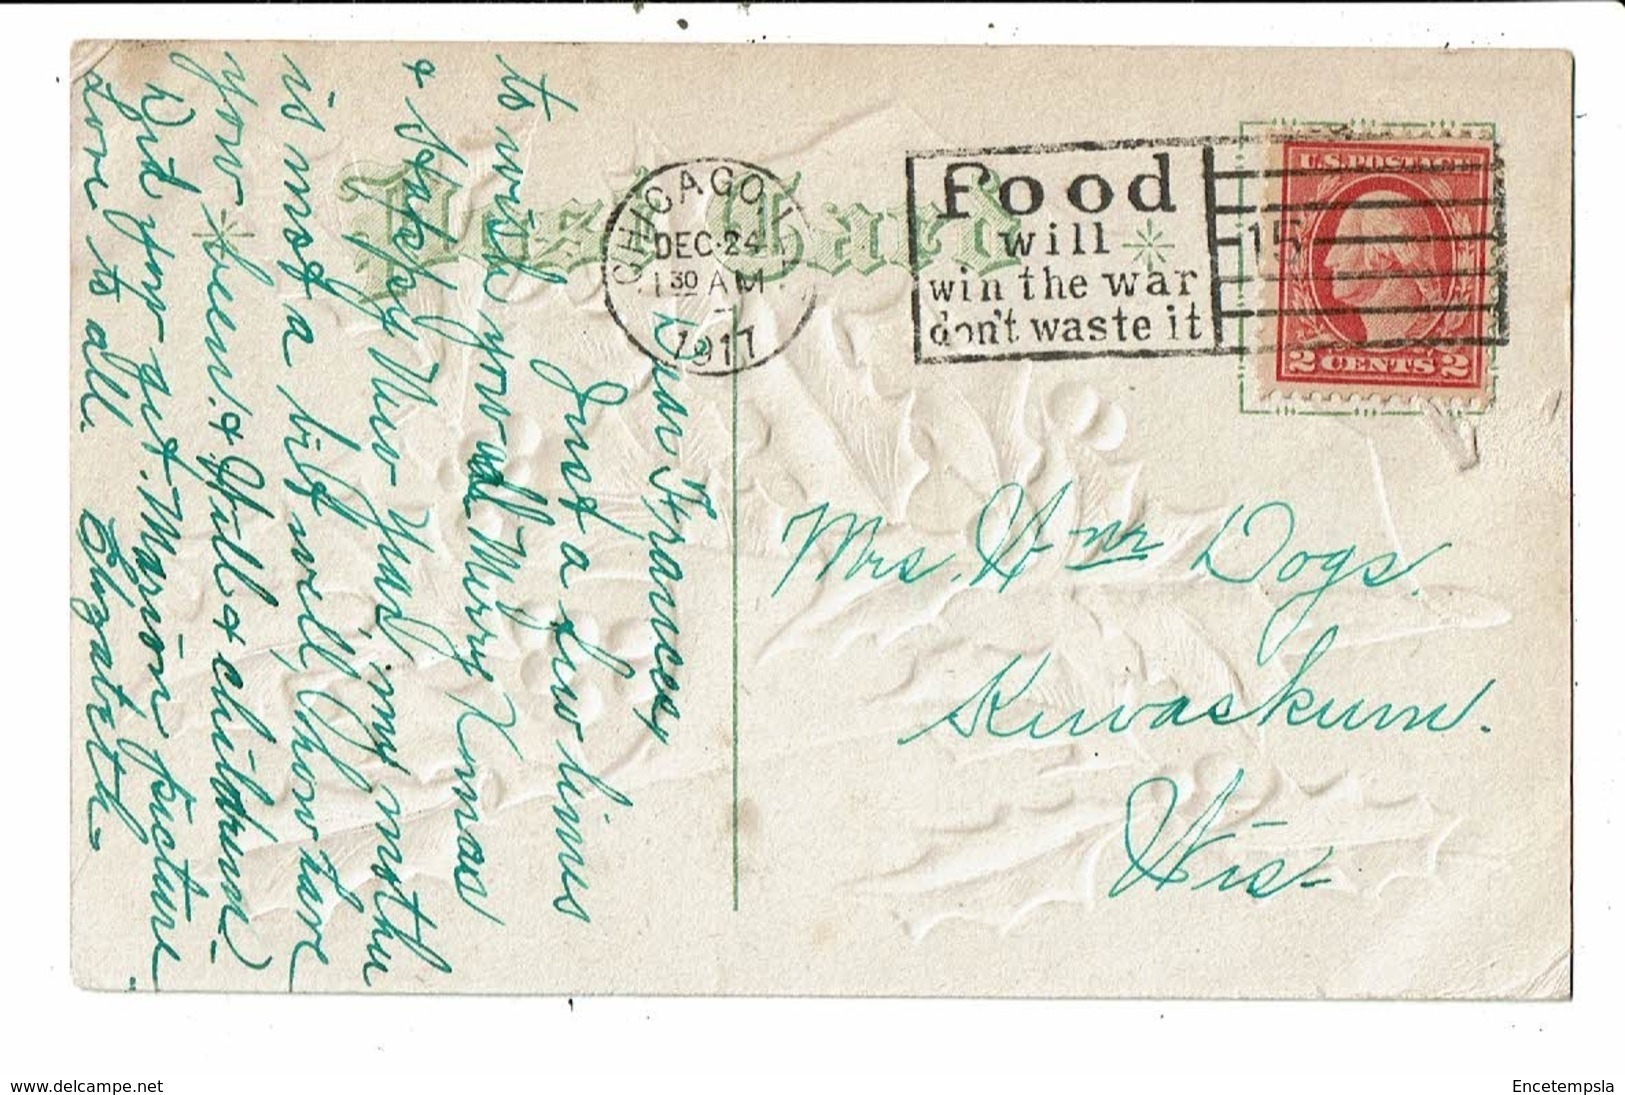 Post Card
CHICAGO, I
DEC 24
1 30 AM
1917
food
will
win the war
don't waste it
15
U.S. POSTAGE
2 CENTS 2
Dear Frances,
Just a few lines
to wish you all Merry Xmas
& Happy New Year, my mother
is not a bit well, how have
you been. & Bill & children.
Did you get Marion picture.
Love to all. Elizabeth
Mrs. Wm Dogs.
Kewaskum.
Wis-
www.delcampe.net
Encetempsla